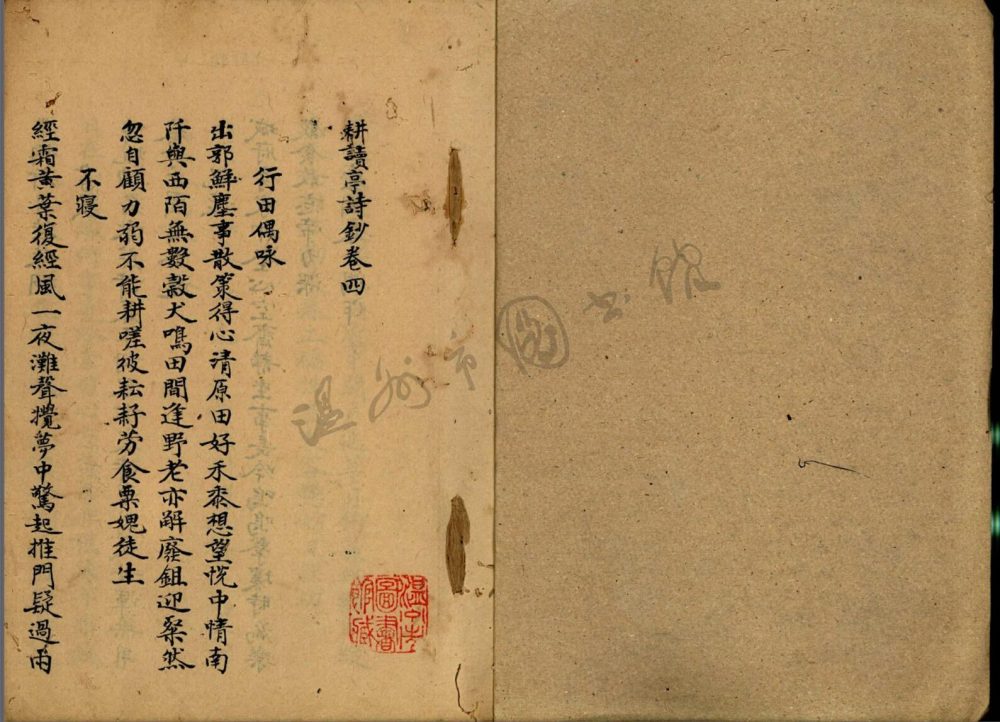 耕讀亭詩鈔卷四
行田偶咏
出郭鮮塵事散策得心清原田好禾黍想望悅中情南
阡與西陌無數穀犬鳴田間逢野老亦解廢鉏迎粲然
忽自顧力弱不能耕嗟彼耘耔勞食粟媿徒生
不寢
經霜黃葉復經風一夜灘聲攪夢中驚起推門疑過雨
溫州市圖書館藏
溫州市圖书館